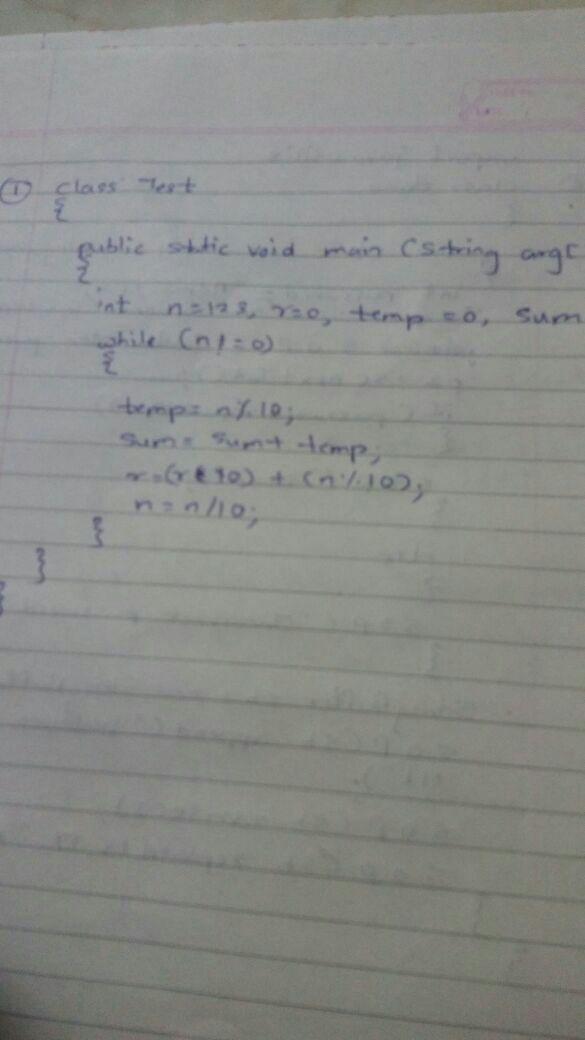 ① class Test
{
public static void main (String arg[
{
int n=123, r=0, temp =0, sum
while (n!=0)
{
temp= n%10;
sum= sum+ temp;
r=(r*10) + (n%10);
n=n/10;
}
}
}